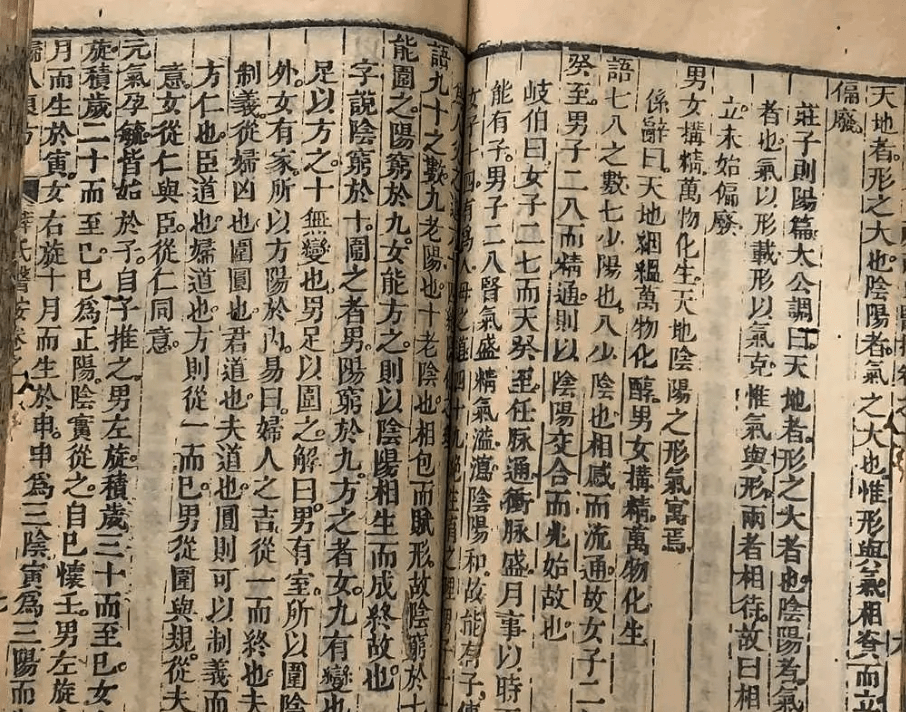 天地者。形之大也。陰陽者。氣之大也。惟形與氣相資而立
偏廢。
莊子則陽篇大公調曰天地者。形之大者也。陰陽者。氣
者也。氣以形載。形以氣充。惟氣與形。兩者相待。故曰相
立。未始偏廢。
男女構精。萬物化生。天地陰陽之形氣寓焉。
係辭曰。天地絪縕。萬物化醇。男女構精。萬物化生
語七八之數。七少陽也。八少陰也。相感而流通。故女子二
癸至。男子二八而精通。則以陰陽交合而兆始故也。
岐伯曰。女子二七而天癸至。任脉通。衝脉盛。月事以時
能有子。男子二八腎氣盛。精氣溢瀉。陰陽和。故能有子。
語九十之數。九老陽也。十老陰也。相包而賦形。故陰窮於十
能圍之。陽窮於九。女能方之。則以陰陽相生而成終故也。
字說陰窮於十。圍之者男。陽窮於九。方之者女。九有變也
足以方之。十無變也。男足以圍之。解曰。男有室。所以圍陰
外。女有家。所以方陽於內。易曰。婦人之吉。從一而終也。夫
制義。從婦凶也。圍圓也。君道也。夫道也。圓則可以制義而
方仁也。臣道也。婦道也。方則從一而已。男從圍與規從夫
意。女從仁與臣。從仁同意。
元氣孕毓。皆始於子。自子推之。男左旋。積歲三十而至巳。女
旋積歲二十而至巳。巳為正陽。陰實從之。自巳懷壬。男左旋
月而生於寅。女右旋十月而生於申。申為三陰。寅為三陽。而
薛氏醫按卷之